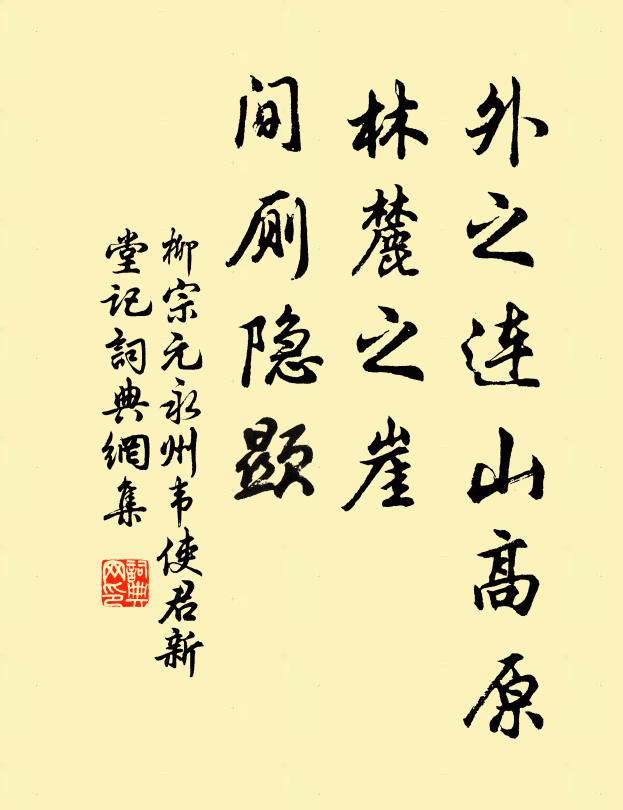 外之连山高原
林麓之崖
间厕隐显
柳宗元永州韦使君新
堂记詞典網集
詞典
网印